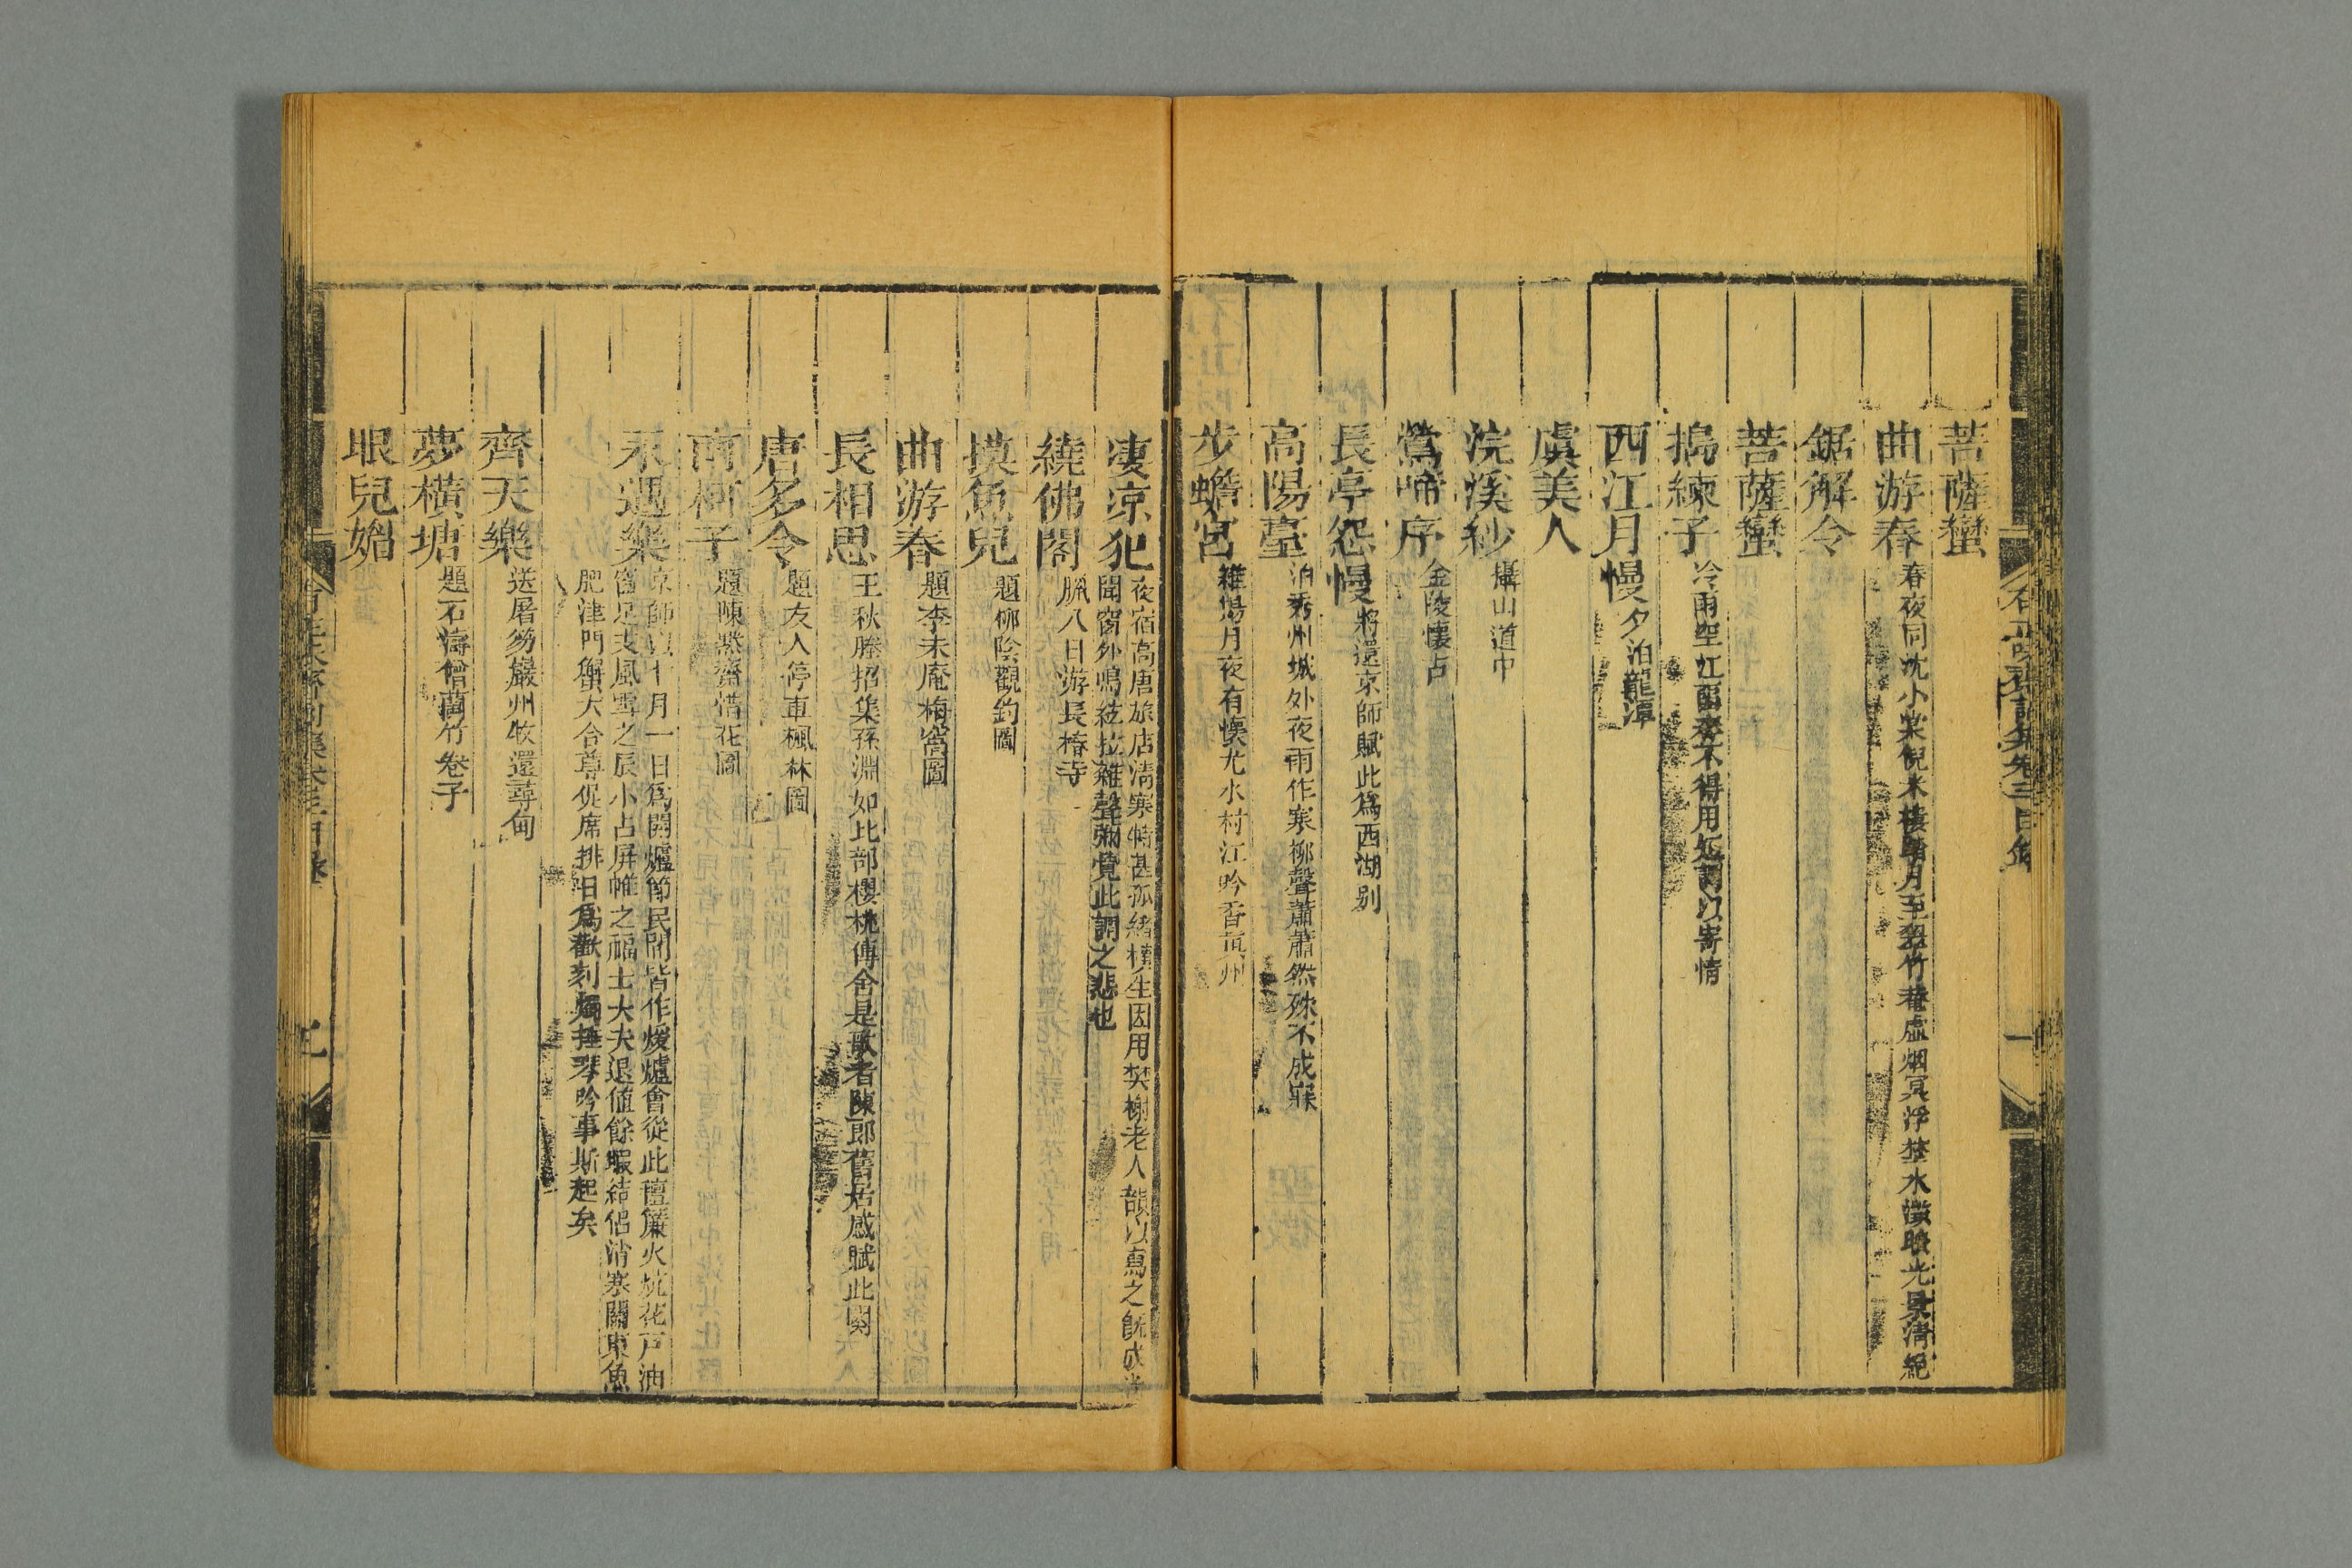 菩薩蠻
曲游春 春夜同沈小裳倪米樓踏月至翠竹菴虛烟冥浮埜水澂映光景淸絕
鋸解令
菩薩蠻
搗練子 冷雨空江 不得用短調以寄情
西江月慢 夕泊龍潭
虞美人
浣溪紗 攝山道中
鶯啼序 金陵懷占
長亭怨慢 將還京師賦此爲西湖别
高陽臺 泊秀州城外夜雨作寒柳聲蕭蕭然殊不成寐
步蟾宮 維揚月夜有懷尤水村江吟香眞州
淒凉犯 夜宿高唐旅店淸寒特甚孤緒橫生因用樊榭老人韻以寫之旣成
聞窗外鳴絃拉雜聲彌覺此調之悲也
繞佛閣 臘八日游長椿寺
摸魚兒 題柳陰觀釣圖
曲游春 題李未庵梅窩圖
長相思 王秋塍招集孫淵如比部櫻桃傳舍是歌者陳郎舊居感賦此闋
唐多令 題友人停車楓林圖
南柯子 題陳默齋惜花圖
永遇樂 京師以十月一日爲開爐節民間皆作煖爐會從此氊簾火炕花戸油
窗足支風雪之辰小占屏帷之福士大夫退値餘暇結侶消寒關東魚
肥津門蟹大合尊促席排日爲歡刻燭 琴吟事斯起矣
齊天樂 送屠笏巖州牧還尋甸
夢橫塘 題石濤僧蘭竹卷子
眼兒媚